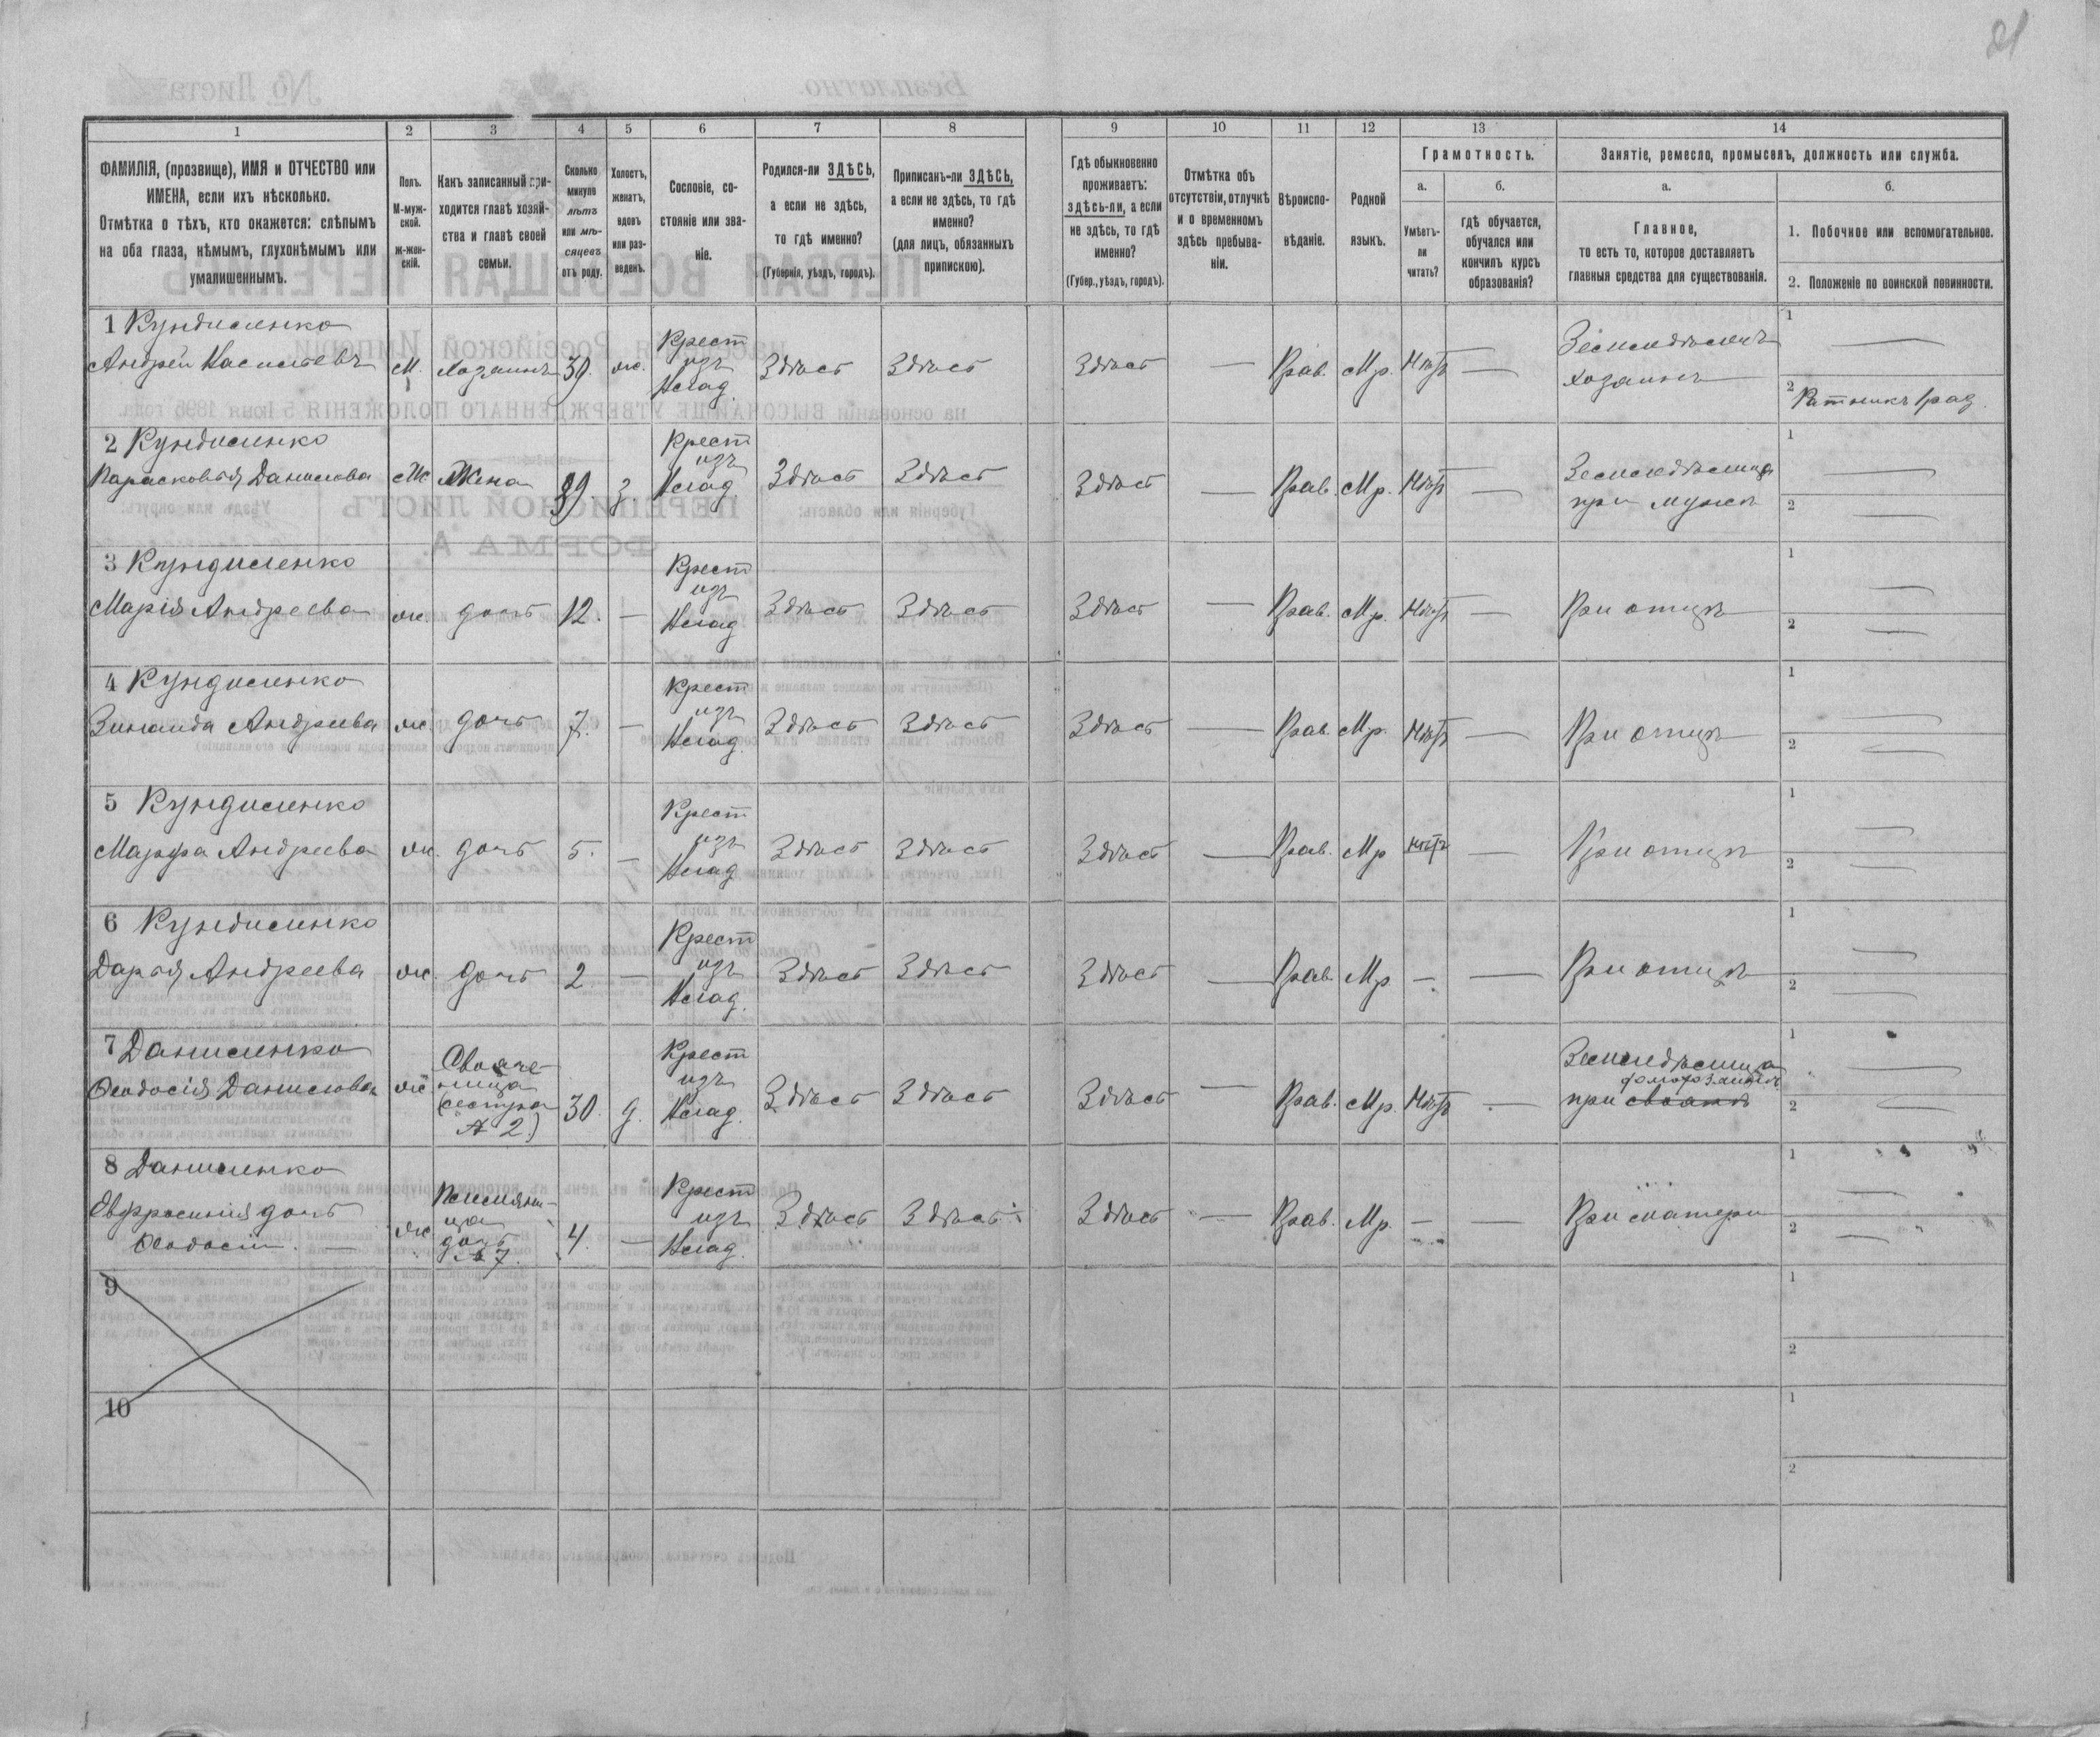 81
1 2 3 4 5 6 7 8 9 10 11 12 13 14
ФАМИЛІЯ, (прозвище), ИМЯ и ОТЧЕСТВО или
ИМЕНА, если ихъ нѣсколько.
Отмѣтка о тѣхъ, кто окажется: слѣпымъ
на оба глаза, нѣмымъ, глухонѣмымъ или
умалишеннымъ.
Полъ.
М-муж-
ской.
ж-жен-
скій.
Какъ записанный при-
ходится главѣ хозяй-
ства и главѣ своей
семьи.
Сколько
минуло
лѣтъ
или мѣ-
сяцевъ
отъ роду.
Холостъ,
женатъ,
вдовъ
или раз-
веденъ.
Сословіе, со-
стояніе или зва-
ніе.
Родился-ли ЗДѢСЬ,
а если не здѣсь,
то гдѣ именно?
(Губернія, уѣздъ, городъ).
Приписанъ-ли ЗДѢСЬ,
а если не здѣсь, то гдѣ
именно?
(для лицъ, обязанныхъ
припискою).
Гдѣ обыкновенно
проживаетъ:
здѣсь-ли, а если
не здѣсь, то гдѣ
именно?
(Губер., уѣздъ, городъ).
Отмѣтка объ
отсутствіи, отлучкѣ
и о временномъ
здѣсь пребыва-
ніи.
Вѣроиспо-
вѣданіе.
Родной
языкъ.
Грамотность.
а.
Умѣетъ-
ли
читать?
б.
гдѣ обучается,
обучался или
кончилъ курсъ
образованія?
Занятіе, ремесло, промыселъ, должность или служба.
а.
Главное,
то есть то, которое доставляетъ
главныя средства для существованія.
б.
1. Побочное или вспомогательное.
2. Положеніе по воинской повинности.
1 Кундиленко
Андрей М. Хозяинъ 39. ж.
Крест
изъ
Влад.
Здѣсь Здѣсь Здѣсь — Прав. Мр. Нѣтъ —
Земледѣлецъ
хозяинъ
1 —
2 Ратникъ 1 раз.
2 Кундиленко
Парасковья Данилова Ж Жена 39. З.
Крест
изъ
Влад
Здѣсь Здѣсь Здѣсь — Прав. Мр. Нѣтъ —
Земледѣлица
при мужѣ
1 —
2 —
3 Кундиленко
Марія Андреева ж. дочь 12. —
Крест
изъ
Влад
Здѣсь Здѣсь Здѣсь — Прав. Мр. Нѣтъ —
При отцѣ
1 —
2 —
4 Кундиленко
Зинаида Андреева ж. дочь 7. —
Крест
изъ
Влад.
Здѣсь Здѣсь Здѣсь — Прав. Мр. Нѣтъ —
При отцѣ
1 —
2 —
5 Кундиленко
Марфа Андреева ж. дочь 5. —
Крест
изъ
Влад
Здѣсь Здѣсь Здѣсь — Прав. Мр Нѣтъ —
При отцѣ
1 —
2 —
6 Кундиленко
Дарья Андреева ж. дочь 2 —
Крест
изъ
Влад.
Здѣсь Здѣсь Здѣсь — Прав. Мр — —
При отцѣ
1 —
2 —
7 Даниленко
Ѳеодосія Данилова ж
Своаче-
ница
(сестра
№ 2)
30. д.
Крест
изъ
Влад.
Здѣсь Здѣсь Здѣсь — Прав. Мр. Нѣтъ —
Земледѣлица
при
1 —
2 —
8 Даниленко
Евфросинія дочь
Ѳеодосіи. — ж
Племянни-
ца
дочь
№ 7.
4. —
Крест
изъ
Влад.
Здѣсь Здѣсь Здѣсь — Прав. Мр. — —
При матери
1 —
2 —
9
1
2
10
1
2